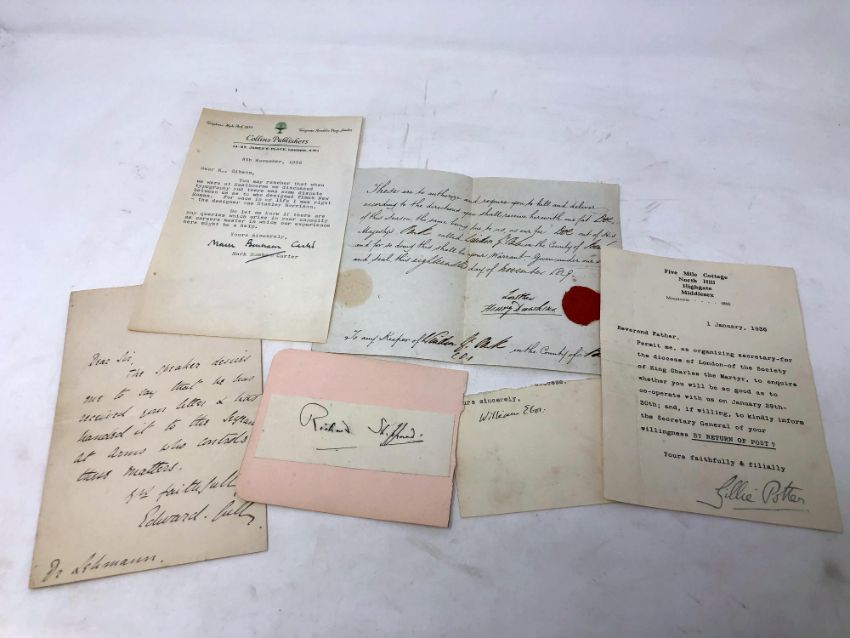 Collins Publishers
14 ST. JAMES'S PLACE, LONDON, S.W.1
8th November, 1956
Dear Mr. Gibson,
You may remember that when
we were at Eastbourne we discussed
typography and there was some dispute
between us as to who designed Times New
Roman. For once in my life I was right
the designer was Stanley Morrison.
Do let me know if there are
any queries which arise in your capacity
as careers master in which our experience
here might be a help.
Yours sincerely,
Mark Carter
These are to authorize and require you to kill and deliver
according to the directions you shall receive herewith one fat Doe
of this Season the same being due to us as our fee Doe out of His
Majesty's Park called in the County of
and for so doing this shall be your Warrant. Given under our
and seal this eighteenth day of November 1819.
Henry
To any Keeper of Park
Esq. in the County of
Five Mile Cottage
North Hill
Highgate
Middlesex
1 January, 1936
Reverend Father,
Permit me, as organizing secretary-for
the diocese of London-of the Society
of King Charles the Martyr, to enquire
whether you will be so good as to
co-operate with us on January 29th-
30th; and, if willing, to kindly inform
the Secretary General of your
willingness BY RETURN OF POST?
Yours faithfully & filially
Gillie Potter
Dear Sir,
The Speaker desires
me to say that he has
received your letter & has
handed it to the Sergeant
at arms who controls
these matters.
Yrs faithfully
Edward Gully
Dr Lehmann.
Richard Sheppard.
yours sincerely,
William